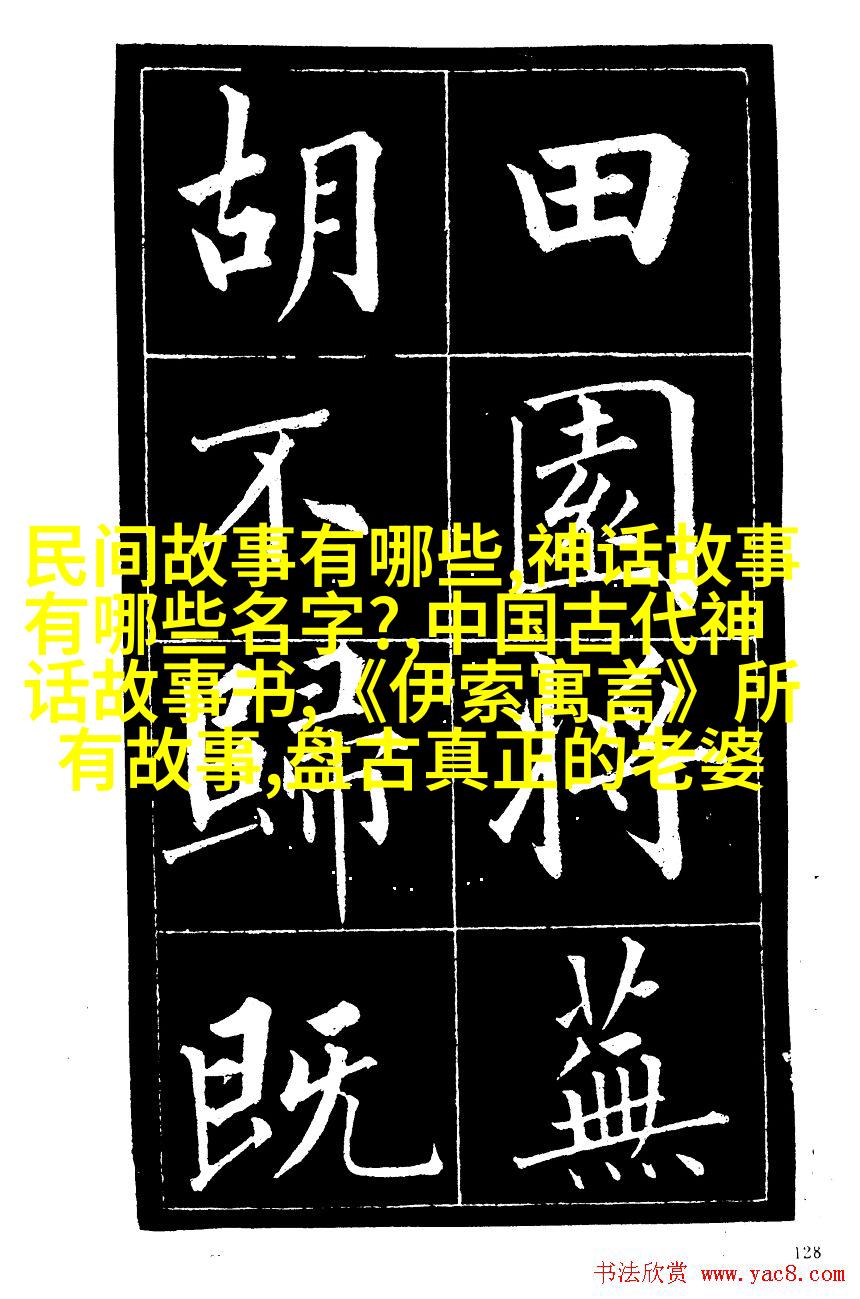 田園將蕪
胡不歸既
民间故事有哪些,神话故事
有哪些名字?,中国古代神
话故事书,《伊索寓言》所
有故事,盘古真正的老婆
128
书法欣赏 www.yac8.com